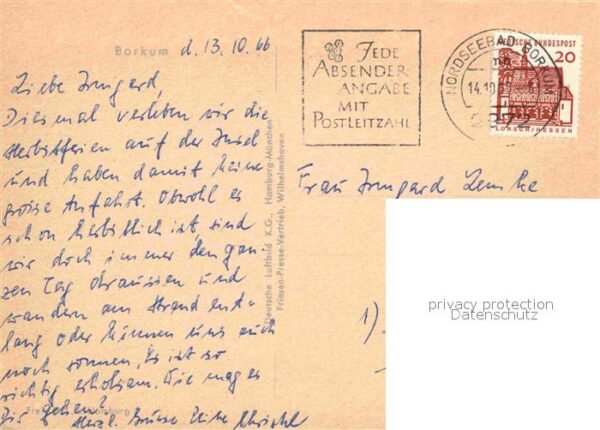 Borkum d. 13. 10. 66
Liebe Irmgard,
Diesmal verleben wir die
Herbstferien auf der Insel
und haben damit keine
große Anfahrt. Obwohl es
schon herbstlich ist sind
wir doch immer den gan-
zen Tag draussen und
wandern am Strand ent-
lang oder können uns auch
noch sonnen. Es ist so
richtig erholsam. Wie mag es
Dir gehen?
Herzl. Grüsse
Deutsche Luftbild K.G., Hamburg-München
Friesen-Presse-Vertrieb, Wilhelmshaven
JEDE
ABSENDER-
ANGABE
MIT
POSTLEITZAHL
NORDSEEBAD BORKUM
14.10.
DEUTSCHE BUNDESPOST
20
LORSCH/HESSEN
Frau Irmgard Lemke
1)
privacy protection
Datenschutz